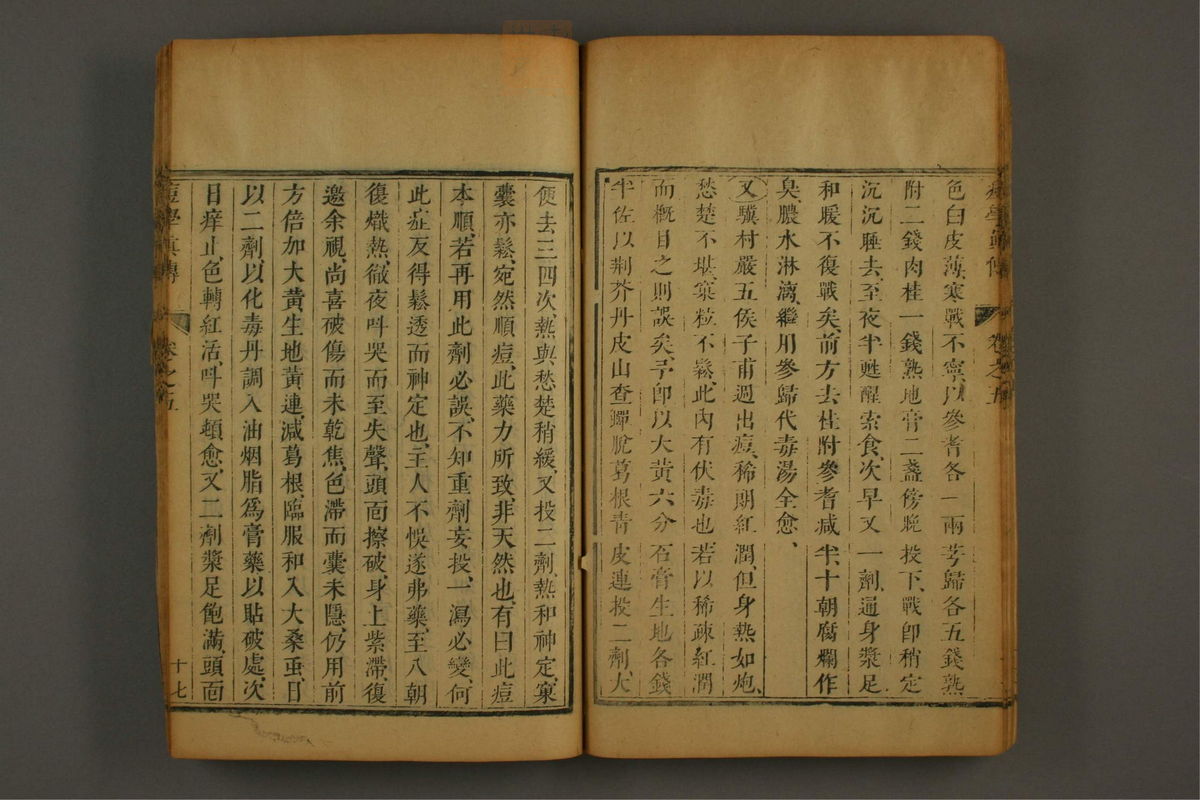 痘學眞傳 卷之五
色白皮薄寒戰不寧以參耆各一兩芎歸各五錢熟
附二錢肉桂一錢熟地膏二盞傍晚投下戰卽稍定
沉沉睡去至夜半甦醒索食次早又一劑通身漿足
和暖不復戰矣前方去桂附參耆減半十朝腐爛作
臭膿水淋漓繼用參歸代毒湯全愈、
又驥村嚴五侯子甫週出痘、稀朗紅潤、但身熱如炮、
愁楚不堪、窠粒不鬆、此內有伏毒也、若以稀疎紅潤
而概目之則誤矣、予卽以大黃六分石膏生地各錢
半佐以荆芥丹皮山查蟬脫葛根青皮連投二劑、大
便去三四次、熱與愁楚稍緩、又投二劑、熱和神定、窠
囊亦鬆、宛然順痘、此藥力所致非天然也、有曰此痘
本順、若再用此劑必誤、不知重劑妄投、一瀉必變、何
此症反得鬆透而神定也、主人不悞遂弗藥至八朝
復熾熱、徹夜呌哭而至失聲、頭面擦破、身上紫滯、復
邀余視、尚喜破傷而未乾焦、色滯而囊未隱、仍用前
方倍加大黃生地黃連、減葛根、臨服和入大桑蟲、日
以二劑以化毒丹調入油烟脂爲膏藥以貼破處、次
日痒止、色轉紅活、呌哭頓愈、又二劑漿足飽滿、頭面
痘學眞傳 卷之五 十七